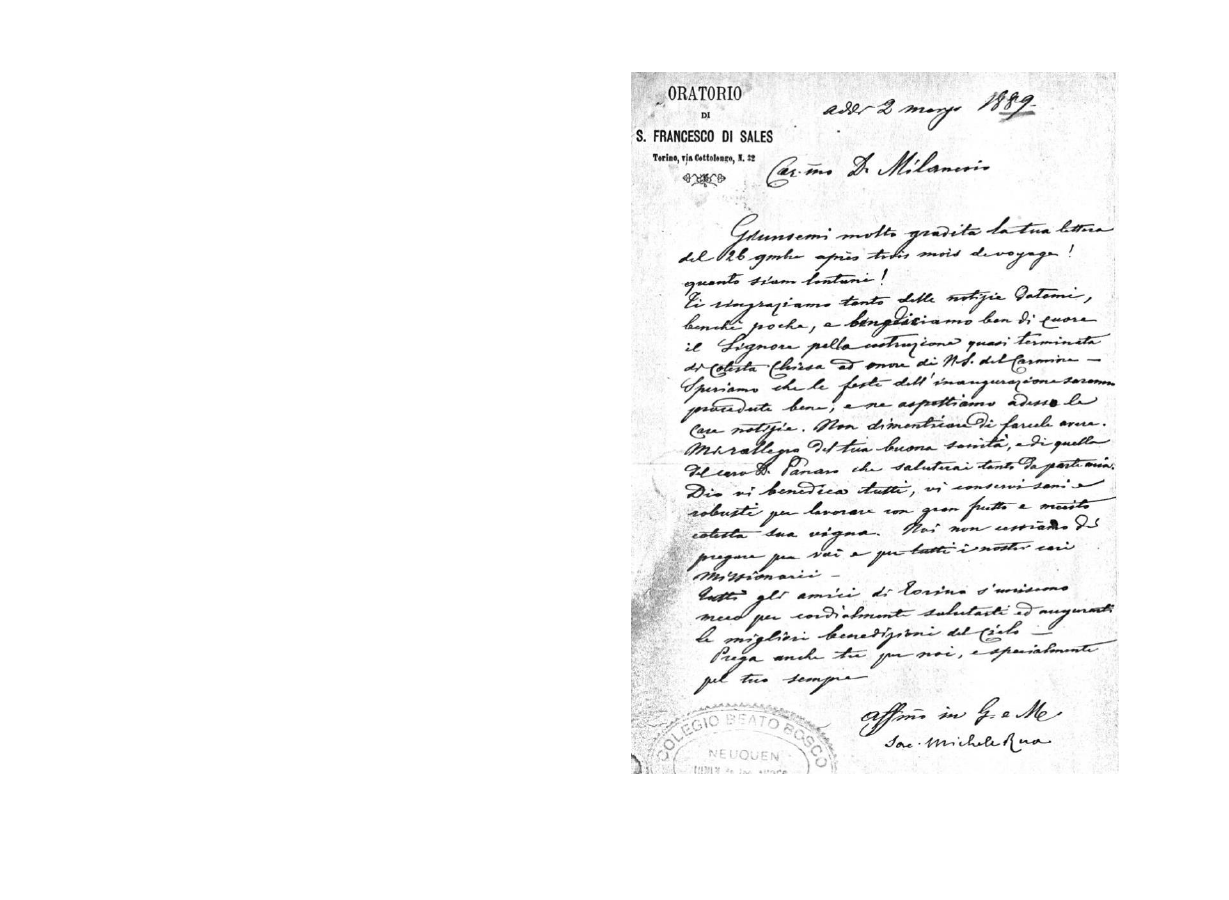 ORATORIO
DI
S. FRANCESCO DI SALES
Torino, via Cottolengo, N. 32
addì 2 marzo 1889.
Car.mo D. Milanesio
Giunsemi molto gradita la tua lettera
del 26 9mbre après trois mois de voyage!
quanto siam lontani!
Ti ringraziamo tanto delle notizie datemi,
benchè poche, e ben di cuore
il Signore pella costruzione quasi terminata
di cotesta Chiesa ad onore di N.S. del Carmine —
Speriamo che le feste dell'inaugurazione saranno
procedute bene, e ne aspettiamo adesso le
care notizie. Non dimenticare di farcele avere.
Mi rallegro del tua buona sanità, e di quella
del caro D. Panaro che saluterai tanto da parte mia.
Dio vi benedica tutti, vi conservi sani e
robusti per lavorare con gran frutto e merito
cotesta sua vigna. Noi non cessiamo di
pregare per voi e per tutti i nostri cari
missionarii —
Tutti gli amici di Torino s'uniscono
meco per cordialmente salutarti ed augurarti
le migliori benedizioni del Cielo —
Prega anche tu per noi, e specialmente
pel tuo sempre
Affmo in G. e M.
Sac. Michele Rua
COLEGIO BEATO BOSCO
NEUQUEN